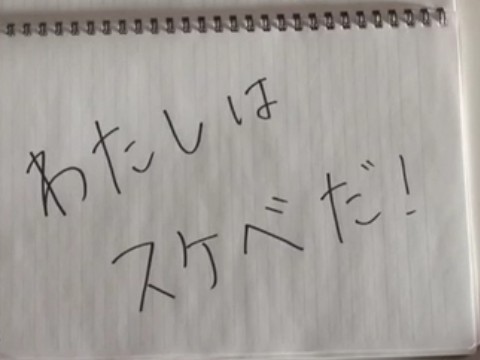 わたしは
スケベだ!